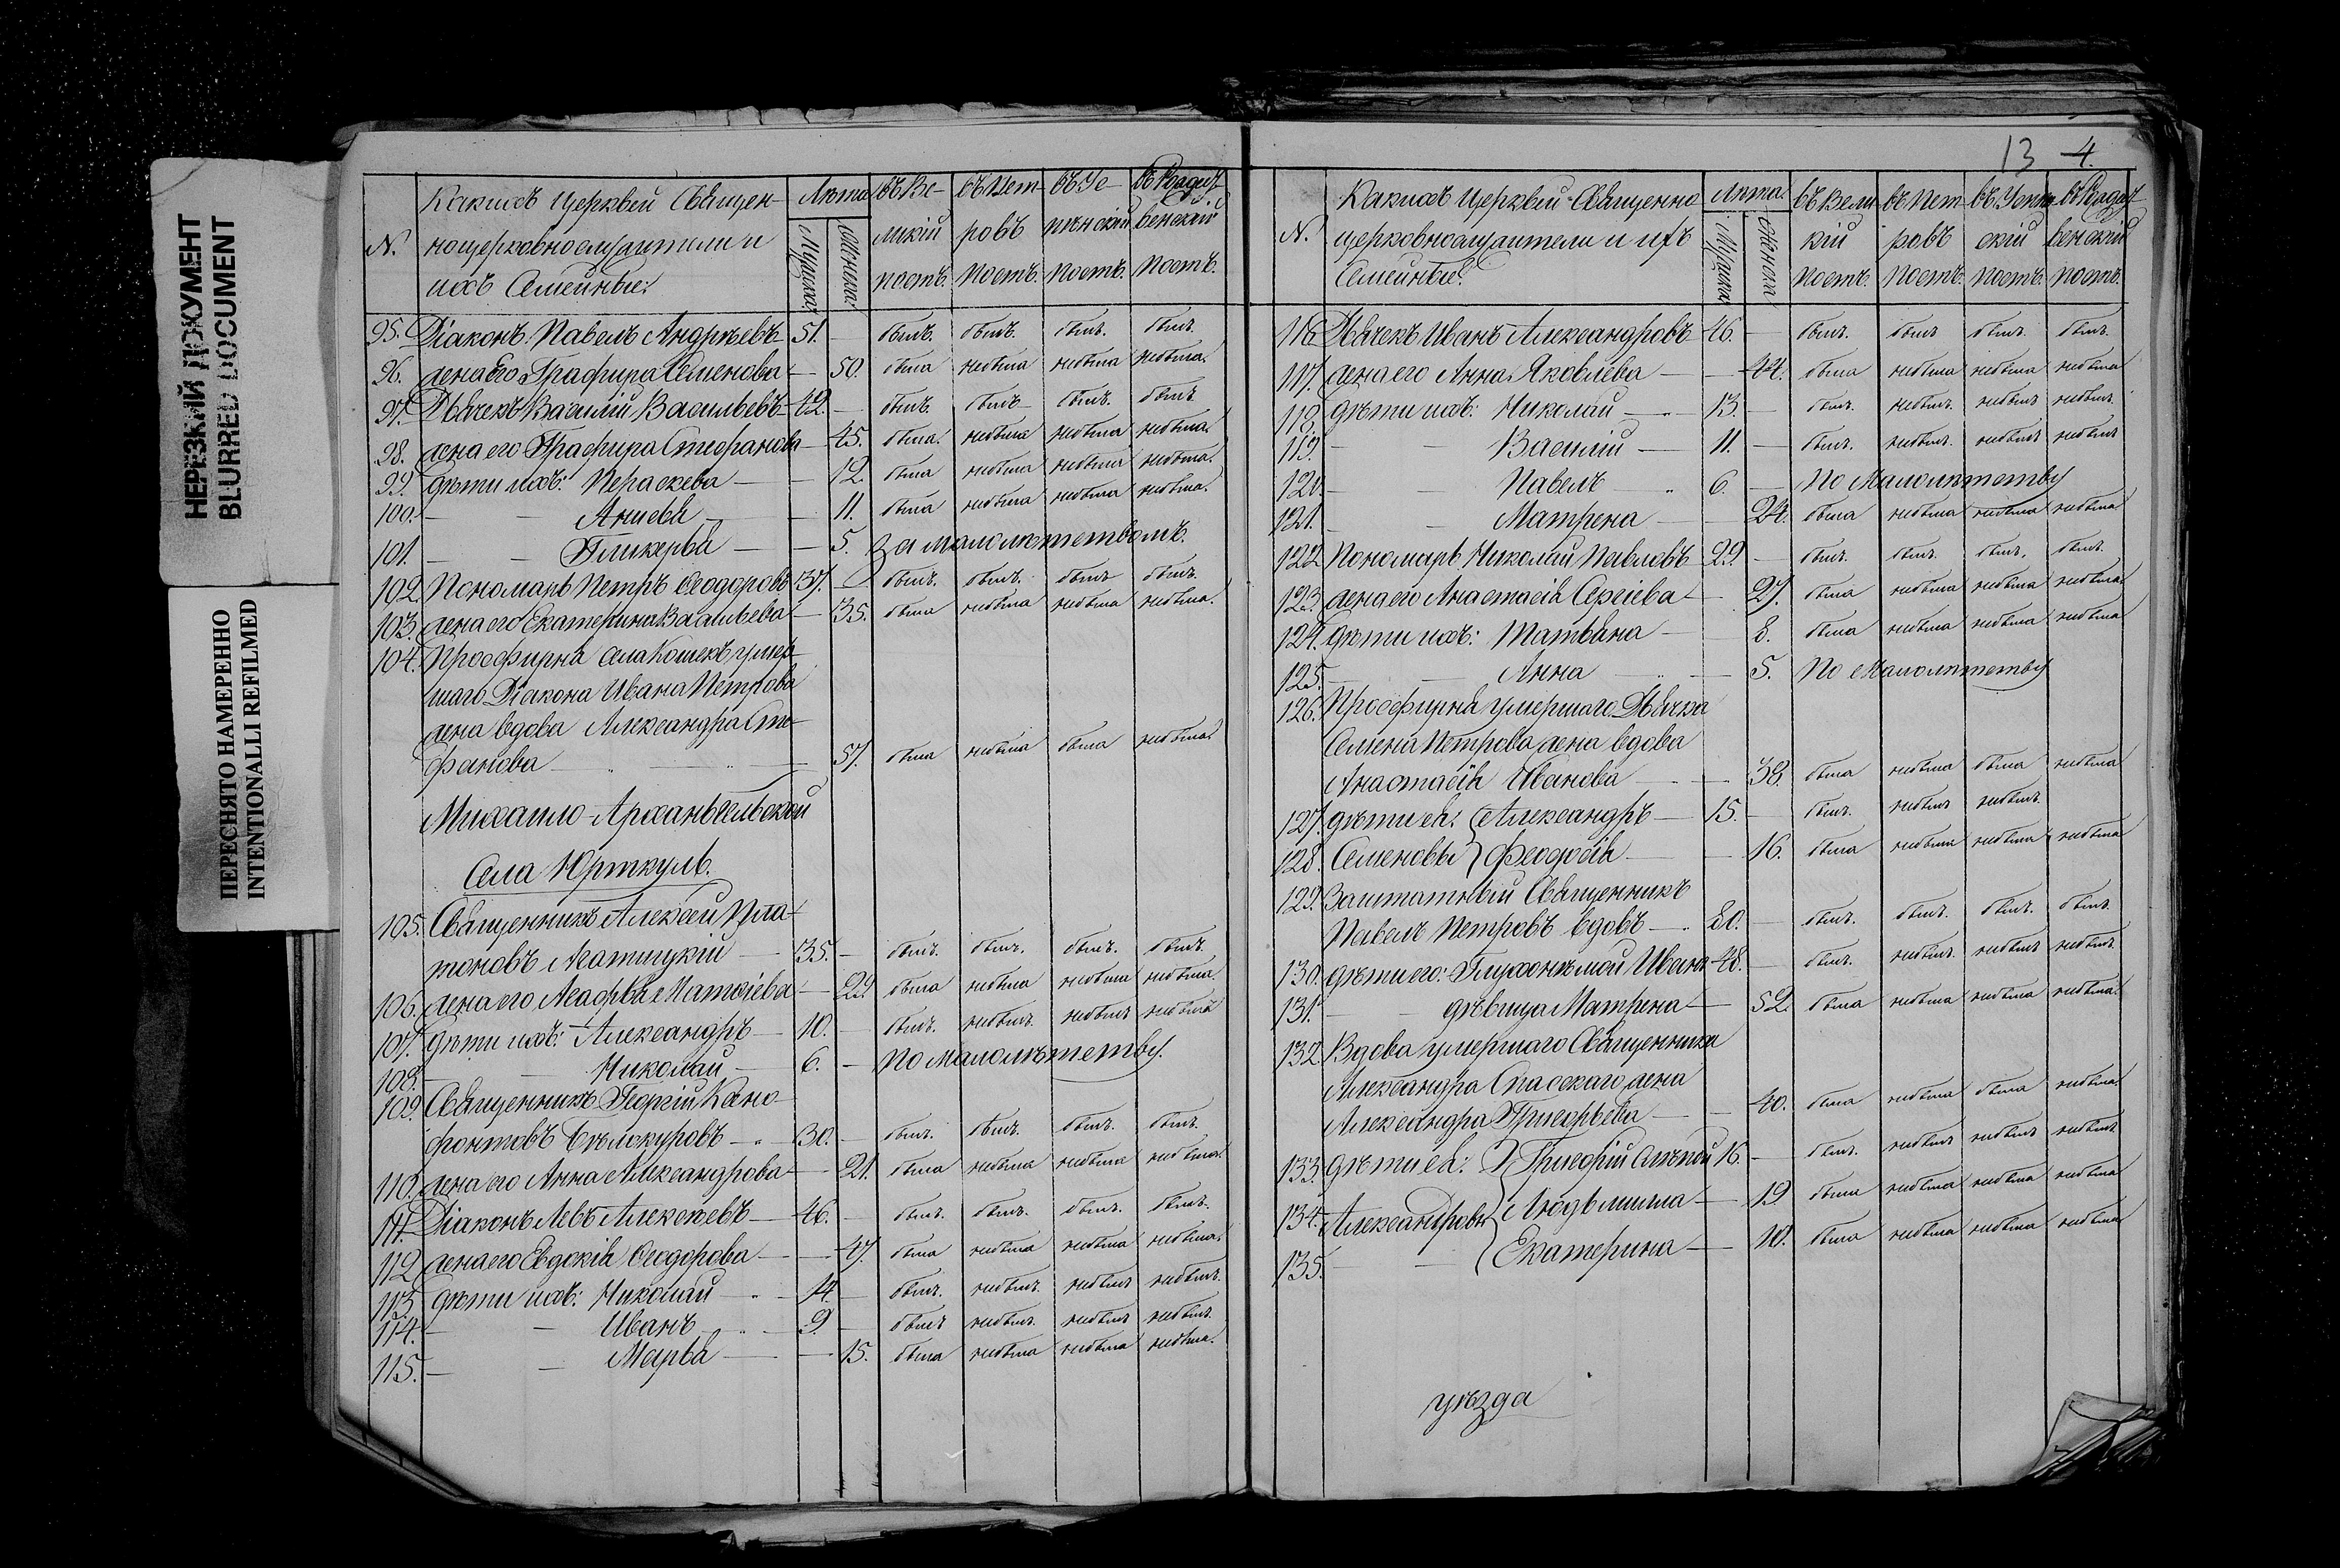 НЕРЕЗКИЙ ДОКУМЕНТ
BLURRED DOCUMENT
ПЕРЕСНЯТО НАМЕРЕННО
INTENTIONALLI REFILMED
N.
Какихъ Церквей Священ-
ноцерковнослужители и
ихъ Семейные:
Лѣта
Мужска.
Женска.
въ Ве-
ликій
постъ.
въ Пет-
ровъ
постъ.
въ Ус-
пенскій
постъ.
въ Рождест
венскій
постъ.
95. Діаконъ Павелъ Андреевъ 51. — былъ. былъ. былъ. былъ.
96. жена Его Графира Семенова — 50. была небыла небыла небыла.
97. Дьячекъ Василій Васильевъ 42. — былъ. былъ былъ. былъ
98. жена его Графира Стефанова — 45. была. небыла небыла небыла.
99. дѣти ихъ: Параскева — 12. была небыла небыла небыла.
100. — — Анисья — 11. была небыла небыла небыла.
101. — — Гликерья — 5. За малолѣтствомъ.
102. Пономарь Петръ Ѳеодоровъ 37. — былъ. былъ. былъ былъ.
103. жена его Екатерина Васильева — 35. была небыла небыла небыла.
104. Просфирня села Кошекъ умер-
шаго Діакона Ивана Петрова
жена вдова Александра Сте-
фанова — 57. была небыла была небыла.
Михаило-Архангельской
Села Юрткуль.
105. Священникъ Алексей Пла-
тоновъ 35. — былъ. былъ. былъ. былъ.
106. жена его Матвіева — 29. была небыла небыла небыла
107. дѣти ихъ: Александръ 10. — былъ. небылъ. небылъ небылъ
108. — — Николай 6. — по малолѣтству.
109. Священникъ Георгій Ксено-
фонтовъ Бѣлокуровъ 30. — былъ. былъ. былъ. былъ.
110. жена его Анна Александрова — 21. была небыла небыла небыла.
111. Діаконъ Левъ Алексеевъ 46. — былъ. былъ. былъ. былъ.
112. жена его Евдокія Ѳеодорова — 47. была небыла небыла небыла.
113. дѣти ихъ: Николай 14. — былъ. небылъ. небылъ небылъ.
114. — — Иванъ 9. — былъ небылъ. небылъ небылъ.
115. — — Марья — 15. была небыла небыла небыла.
13 4.
N.
Какихъ Церквей Священно
церковнослужители и ихъ
Семейные:
Лѣта.
Мужска.
Женска
въ Вели
кій
постъ.
въ Пет-
ровъ
постъ.
въ Успен
скій
постъ.
въ Рождест
венскій
постъ.
116. Дьячекъ Иванъ Александровъ 46. — былъ. былъ былъ. былъ.
117. жена его Анна Яковлева — 44. была небыла небыла небыла
118. дѣти ихъ: Николай 13. — былъ. небылъ. небылъ небылъ.
119. — Василій 11. — былъ. небылъ. небылъ небылъ
120. — — Павелъ 6. — По Малолѣтству
121. — — Матрена — 24. была небыла небыла небыла
122. Пономарь Николай Павловъ 29. — былъ. былъ. былъ. былъ.
123. жена его Анастасія Сергіева — 27. была небыла небыла небыла.
124. дѣти ихъ: Татьяна — 8. была небыла небыла небыла
125. — — Анна — 5. По Малолѣтству
126. Просфирня умершаго Дьячка
Семена Петрова жена вдова
Анастасія Иванова — 38. была небыла была небыла
127. дѣти ея: Александръ 15. — былъ. небылъ небылъ.
128. Семеновы Феодосія — 16. была небыла небыла небыла
129. Заштатный Священникъ
Павелъ Петровъ вдовъ 80. — былъ. былъ. былъ. былъ.
130. дѣти его: Глухонѣмой Иванъ 48. — былъ. небылъ. небылъ небылъ.
131. — — дѣвица Матрена — 52. была небыла небыла небыла.
132. Вдова умершаго Священника
Александра Спасскаго жена
Александра Григорьева — 40. была небыла была небыла.
133. дѣти ея: Григорій слѣпой 16. — былъ. небылъ небылъ небылъ
134. Александровы Людъмила — 19 была небыла небыла небыла
135. — — Екатерина — 10. была небыла небыла небыла
уѣзда